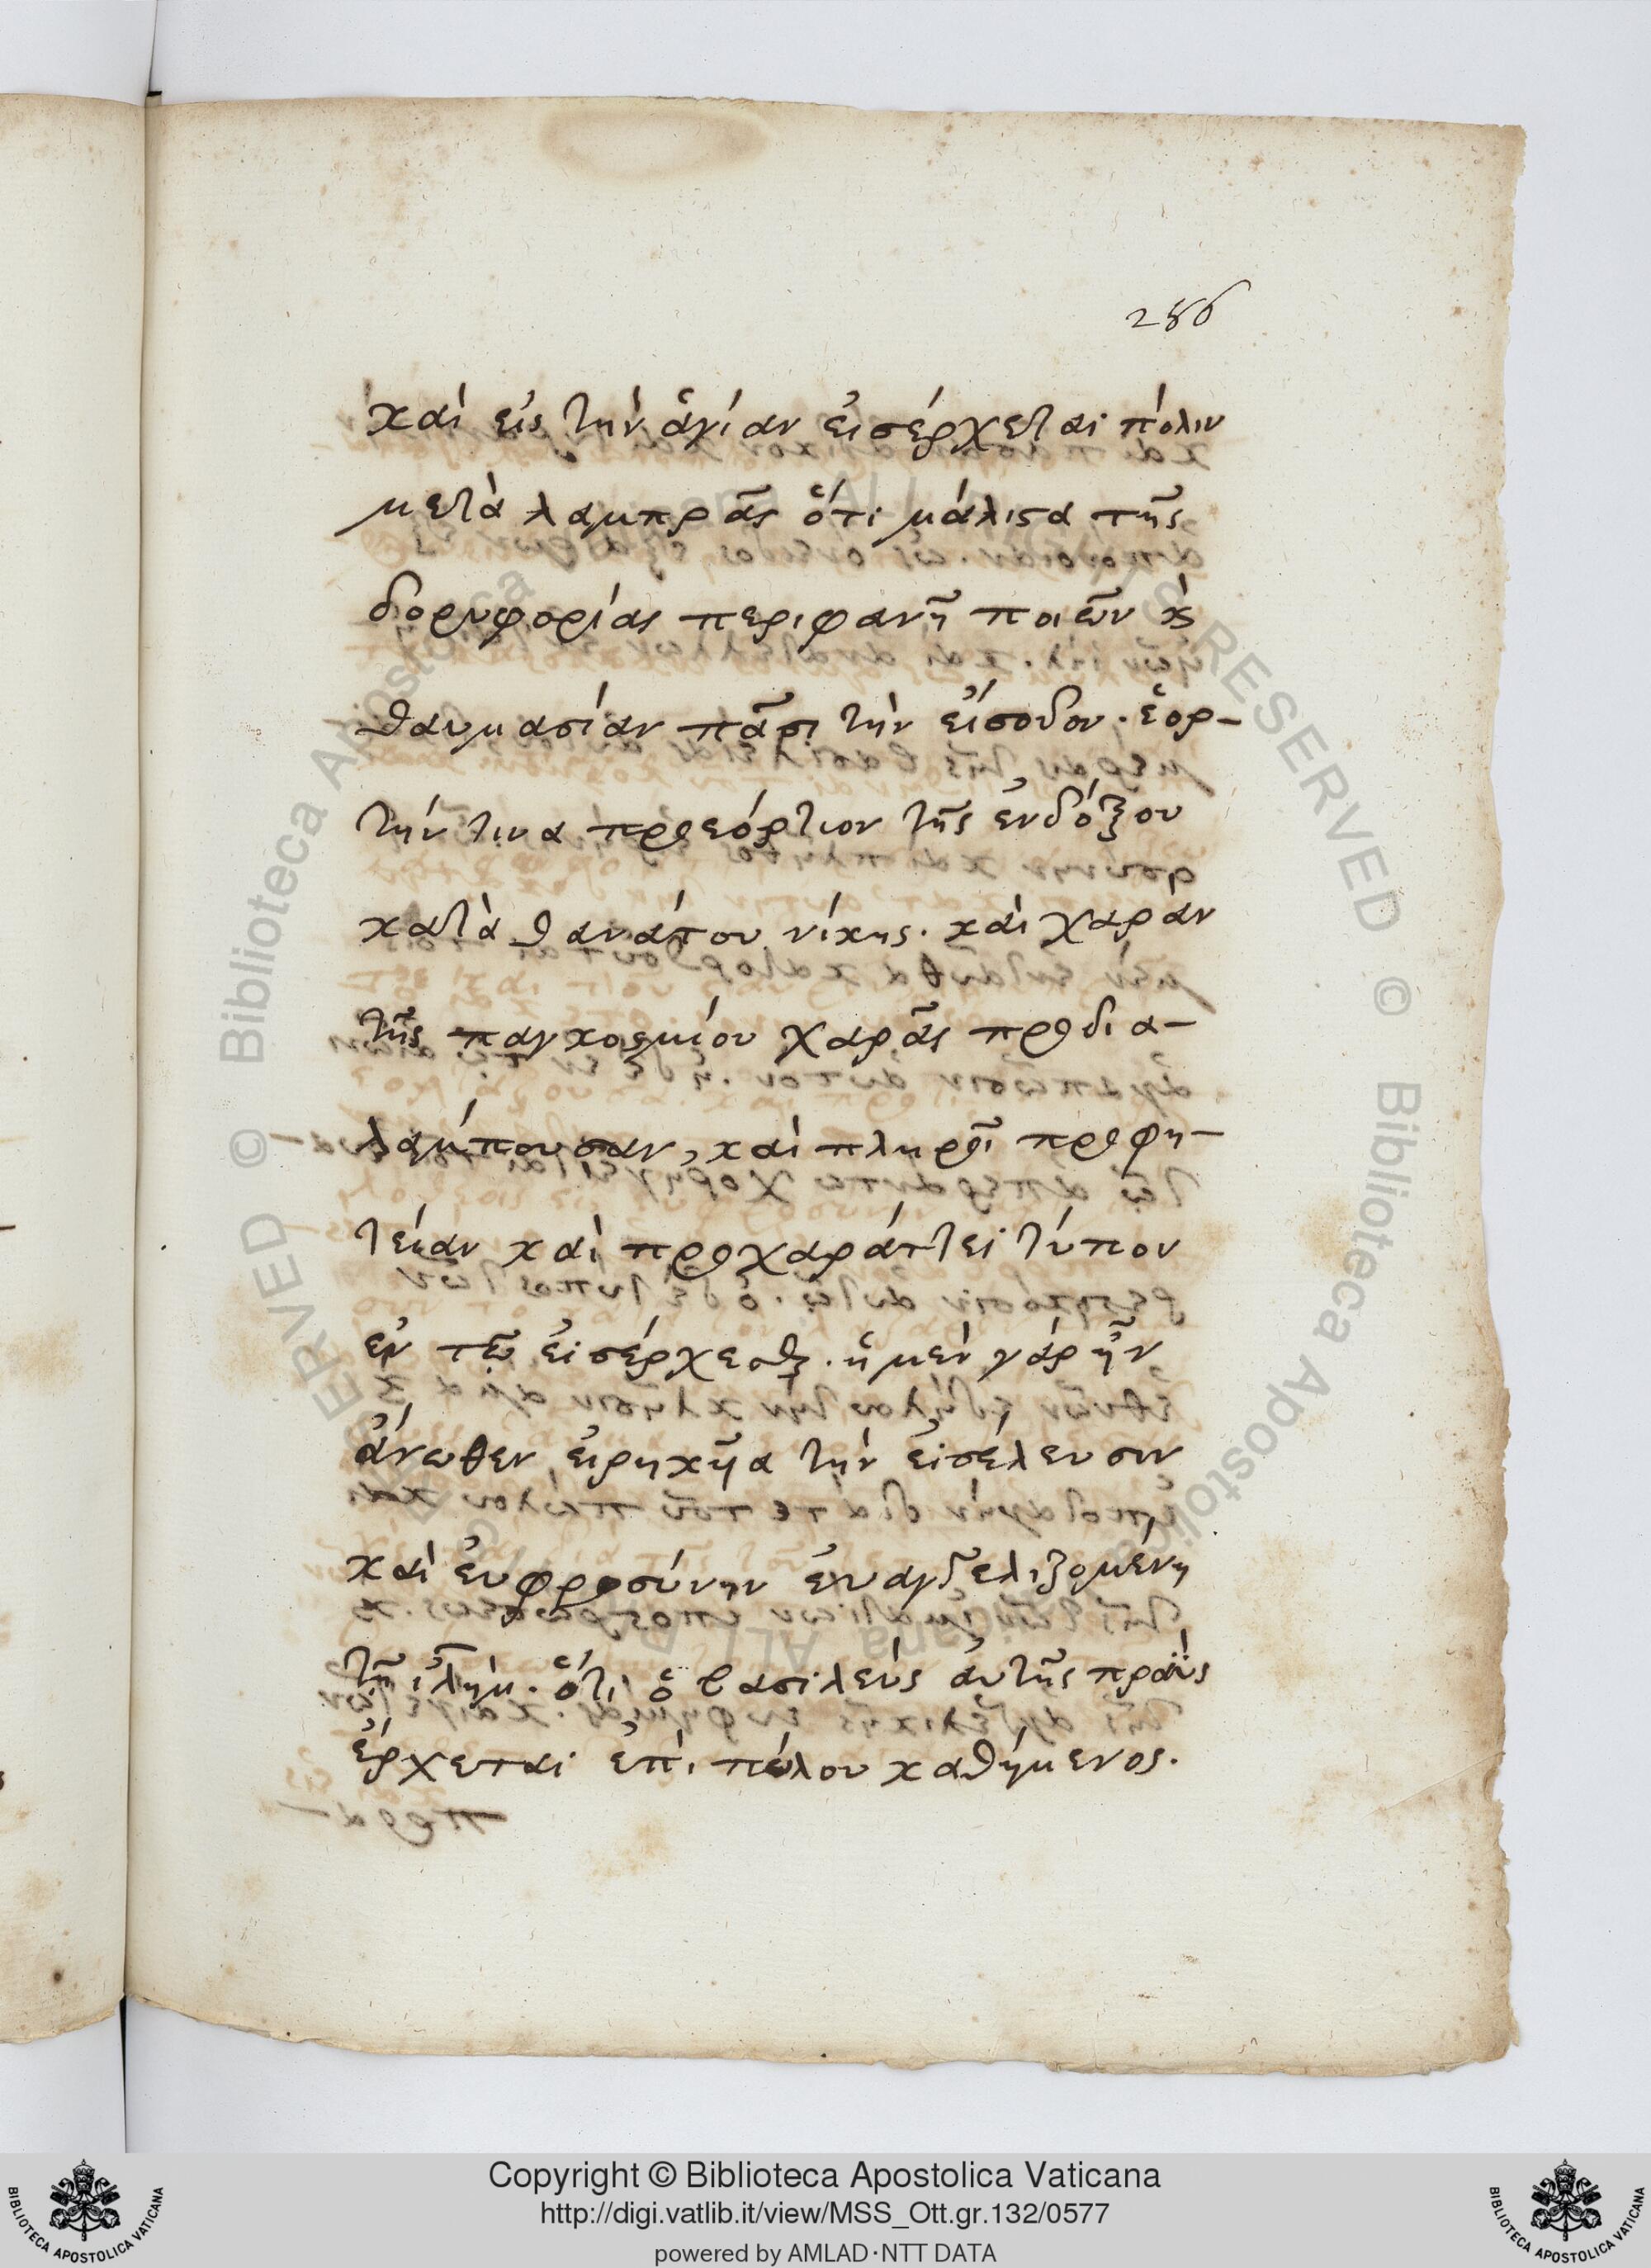 286
καὶ εἰς τὴν ἁγίαν εἰσέρχεται πόλιν
μετὰ λαμπρᾶς ὅτι μάλιστα τῆς
δορυφορίας περιφανῆ ποιῶν κ
θαυμασίαν πᾶσι τὴν εἴσοδον. ἑορ-
τήν τινα προεόρτιον τῆς ἐνδόξου
κατὰ θανάτου νίκης. καὶ χαρὰν
τῆς παγκοσμίου χαρᾶς προδια-
λάμπουσαν, καὶ πληροῖ προφη-
τείαν καὶ προχαράττει τύπον
ἐν τῷ εἰσέρχεσθαι. ἡ μὲν γὰρ ἦν
ἄνωθεν εἰρηκῆα τὴν εἰσέλευσιν
καὶ εὐφροσύνην εὐαγγελιζομένη
τῇ ἰλήμ. ὅτι ὁ βασιλεὺς αὐτῆς πραῢς
ἔρχεται ἐπὶ πώλου καθήμενος.
Copyright © Biblioteca Apostolica Vaticana
http://digi.vatlib.it/view/MSS_Ott.gr.132/0577
powered by AMLAD·NTT DATA
BIBLIOTECA APOSTOLICA VATICANA
BIBLIOTECA APOSTOLICA VATICANA